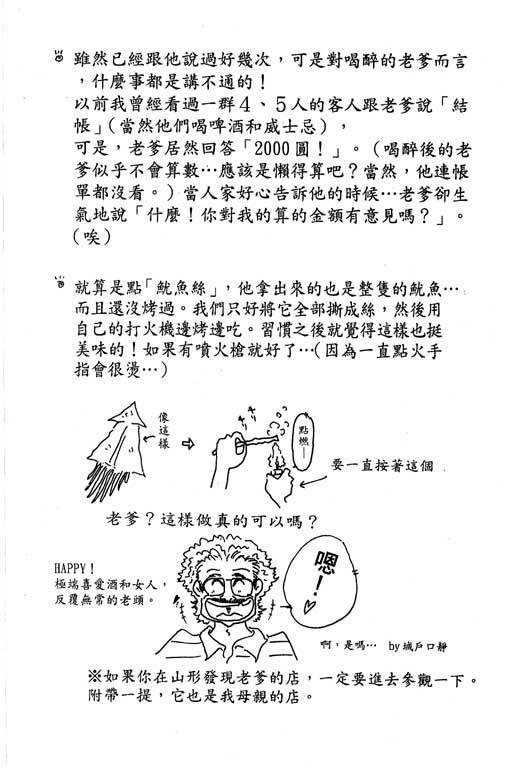 雖然已經跟他說過好幾次，可是對喝醉的老爹而言
，什麼事都是講不通的！
以前我曾經看過一群4、5人的客人跟老爹說「結
帳」(當然他們喝啤酒和威士忌)，
可是，老爹居然回答「2000圓！」。(喝醉後的老
爹似乎不會算數…應該是懶得算吧？當然，他連帳
單都沒看。)當人家好心告訴他的時候…老爹卻生
氣地說「什麼！你對我的算的金額有意見嗎？」。
(唉)
就算是點「魷魚絲」，他拿出來的也是整隻的魷魚…
而且還沒烤過。我們只好將它全部撕成絲，然後用
自己的打火機邊烤邊吃。習慣之後就覺得這樣也挺
美味的！如果有噴火槍就好了…(因為一直點火手
指會很燙…)
像這樣
點燃—
要一直按著這個
老爹？這樣做真的可以嗎？
HAPPY！
極端喜愛酒和女人，
反覆無常的老頭。
嗯！♡
啊，是嗎… by城戶口靜
※如果你在山形發現老爹的店，一定要進去參觀一下。
附帶一提，它也是我母親的店。